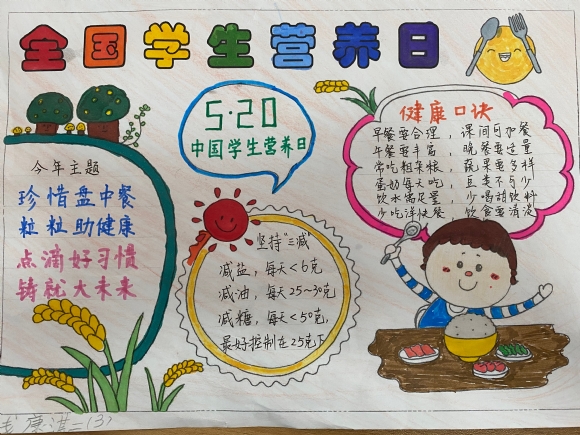 全国学生营养日
5·20
中国学生营养日
健康口诀
早餐要合理，课间可加餐
午餐要丰富，晚餐要适量
常吃粗杂粮，蔬果要多样
蛋奶每天吃，豆类不可少
饮水需足量，少喝甜饮料
少吃洋快餐，饮食要清淡
今年主题
珍惜盘中餐
粒粒助健康
点滴好习惯
铸就大未来
坚持"三减"
减盐，每天<6克
减油，每天25~30克
减糖，每天<50克，
最好控制在25克下
康淇二(3)